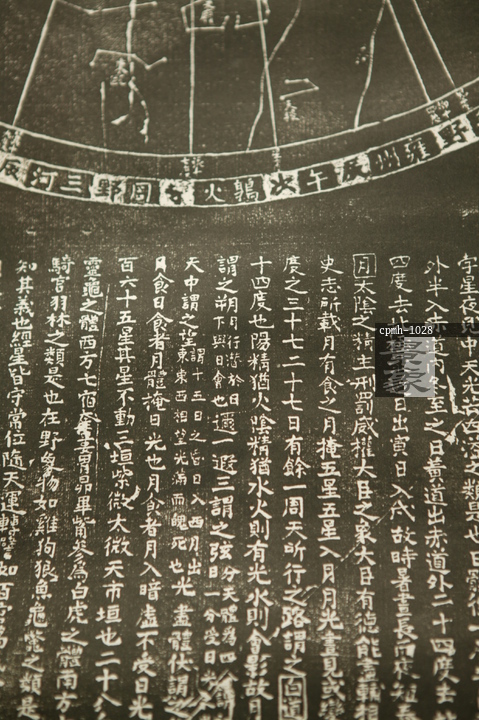 野雍州辰午出鶉火分周野三河辰
外半入赤道内冬至之日黃道出赤道外二十四度去
四度去
日出寅日入戌故時暑晝長而夜短
月太陰之精主刑罰威權大臣之象大臣有德能盡輔相
史志所載月有食之月掩五星五星入月月光晝見或變
度之三十七二十七日有餘一周天所行之路謂之白道
十四度也陽精猶火陰精猶水火則有光水則會影故月
謂之朔月行潛於日之下與日會也邇一遐三謂之弦分天體為四分
天中謂之望謂十五日之昏日入西月出東東西相望光滿而魄死也光盡體伏謂之
月食日食者月體掩日光也月食者月入暗虛不受日光
百六十五星其星不動三垣紫微太微天市垣也二十八
靈龜之體西方七宿奎婁胃昴畢觜參為白虎之體南方
騎官羽林之類是也在野象物如雞狗狼魚龜鱉之類是
知其義也經星皆守常位隨天運轉譬如百官
cpmh-1028